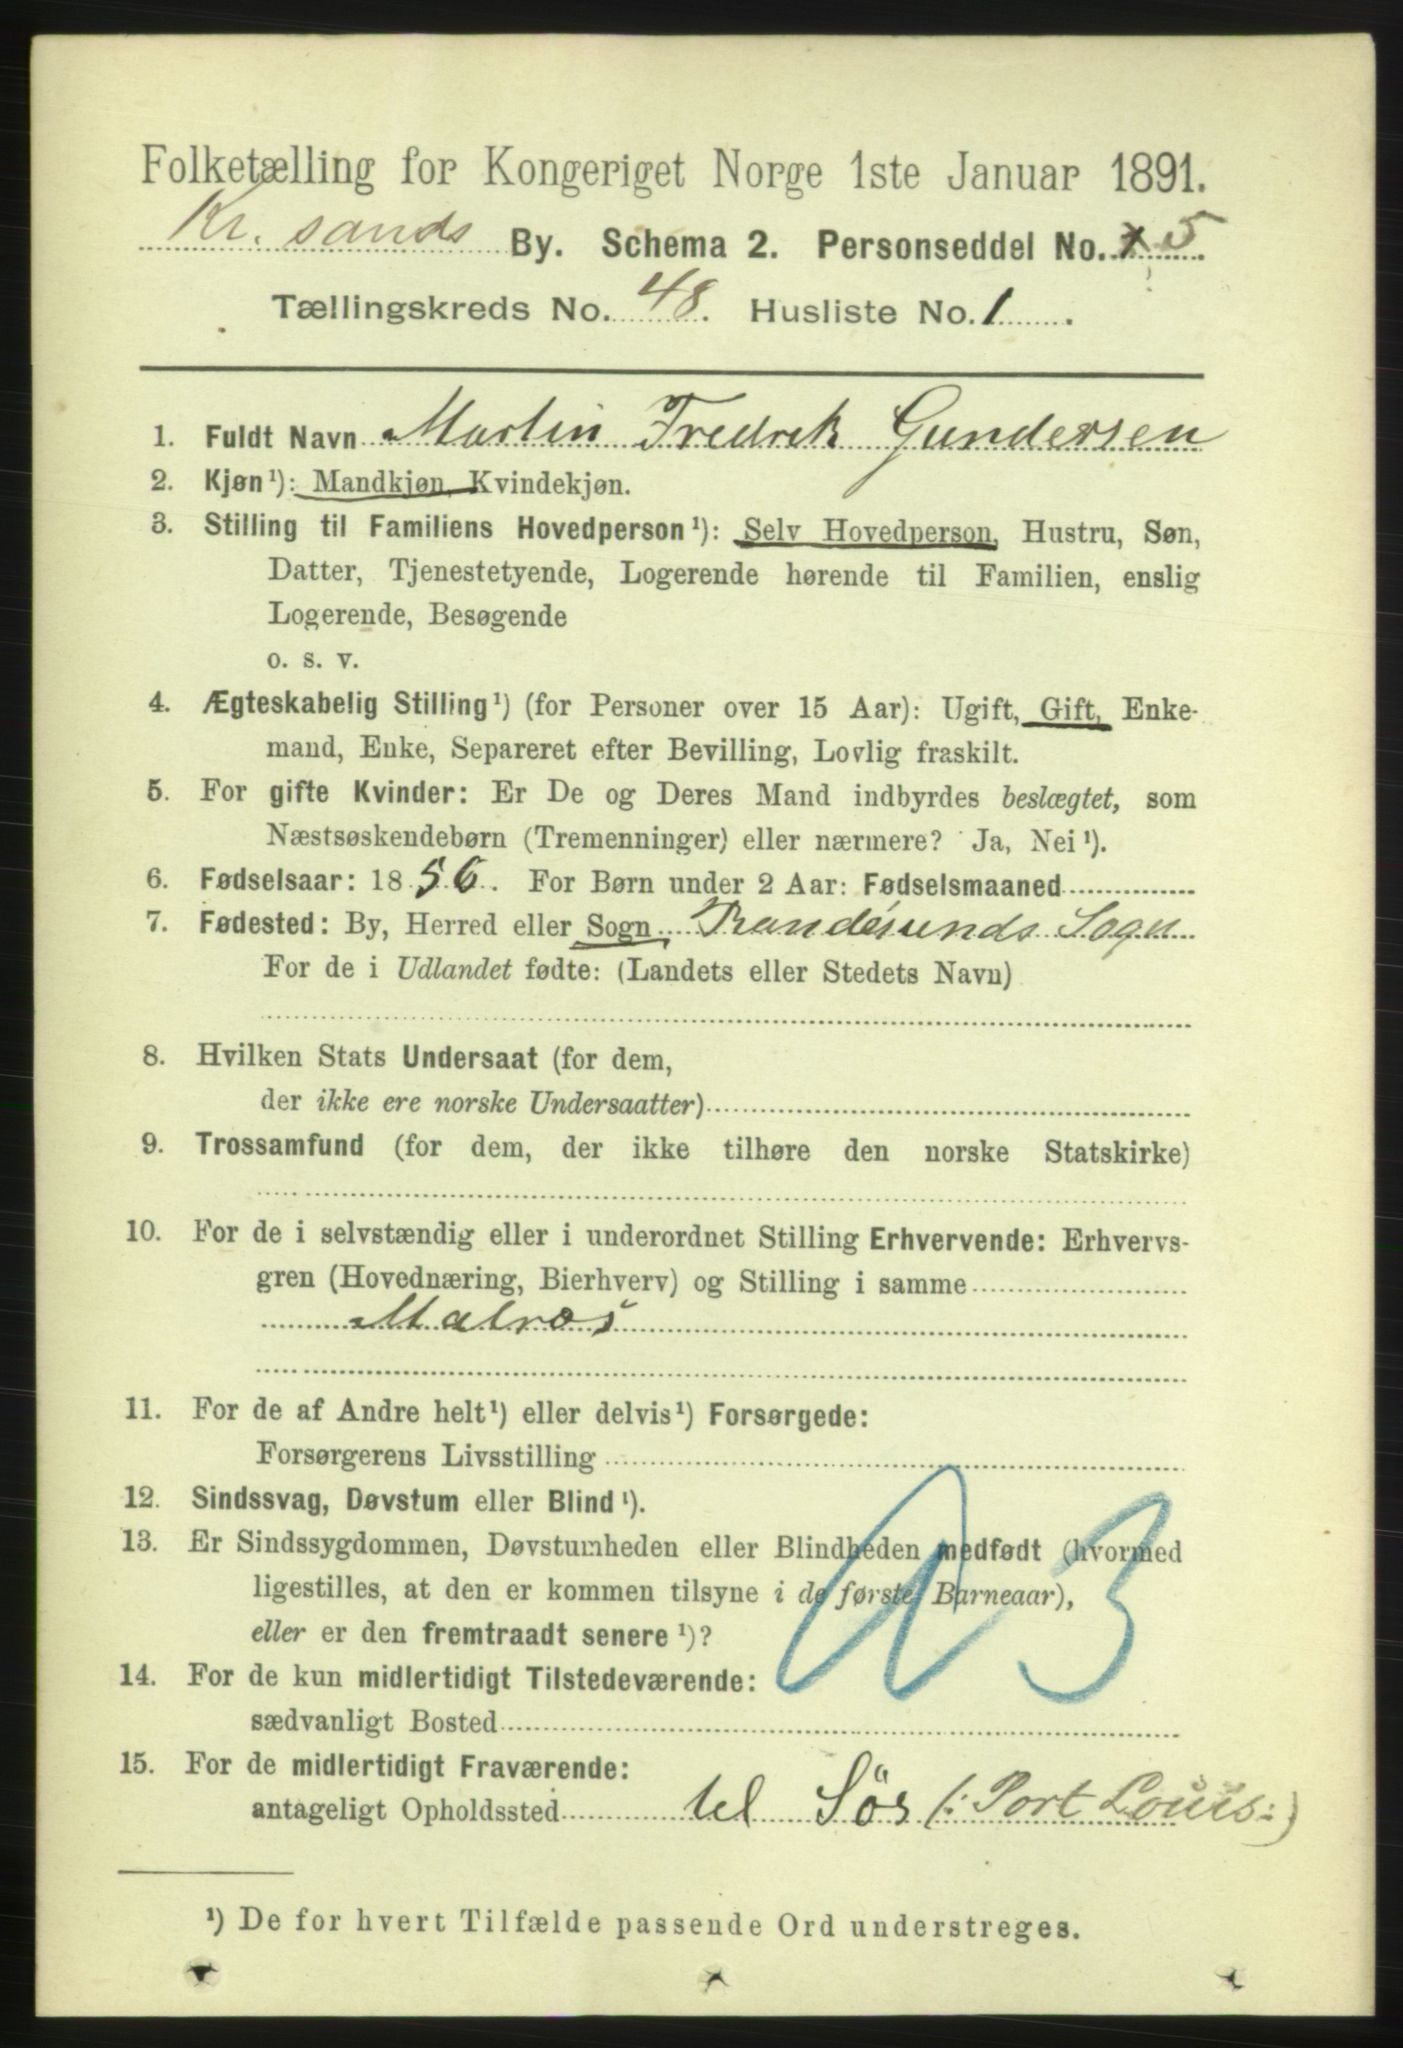 Folketælling for Kongeriget Norge 1ste Januar 1891.
Kr. sands By. Schema 2. Personseddel No. 5
Tællingskreds No. 48. Husliste No. 1.
1. Fuldt Navn Martin Fredrik Gundersen
2. Kjøn¹): Mandkjøn, Kvindekjøn.
3. Stilling til Familiens Hovedperson¹): Selv Hovedperson, Hustru, Søn,
Datter, Tjenestetyende, Logerende hørende til Familien, enslig
Logerende, Besøgende
o. s. v.
4. Ægteskabelig Stilling¹) (for Personer over 15 Aar): Ugift, Gift, Enke-
mand, Enke, Separeret efter Bevilling, Lovlig fraskilt.
5. For gifte Kvinder: Er De og Deres Mand indbyrdes beslægtet, som
Næstsøskendebørn (Tremenninger) eller nærmere? Ja, Nei¹).
6. Fødselsaar: 1856. For Børn under 2 Aar: Fødselsmaaned
7. Fødested: By, Herred eller Sogn Randesunds Sogn
For de i Udlandet fødte: (Landets eller Stedets Navn)
8. Hvilken Stats Undersaat (for dem,
der ikke ere norske Undersaatter)
9. Trossamfund (for dem, der ikke tilhøre den norske Statskirke)
10. For de i selvstændig eller i underordnet Stilling Erhvervende: Erhvervs-
gren (Hovednæring, Bierhverv) og Stilling i samme
Matros
11. For de af Andre helt¹) eller delvis¹) Forsørgede:
Forsørgerens Livsstilling
12. Sindssvag, Døvstum eller Blind¹).
13. Er Sindssygdommen, Døvstumheden eller Blindheden medfødt (hvormed
ligestilles, at den er kommen tilsyne i de første Barneaar),
eller er den fremtraadt senere¹)?
14. For de kun midlertidigt Tilstedeværende:
sædvanligt Bosted
15. For de midlertidigt Fraværende:
antageligt Opholdssted til Søs (: Port Louis :)
¹) De for hvert Tilfælde passende Ord understreges.